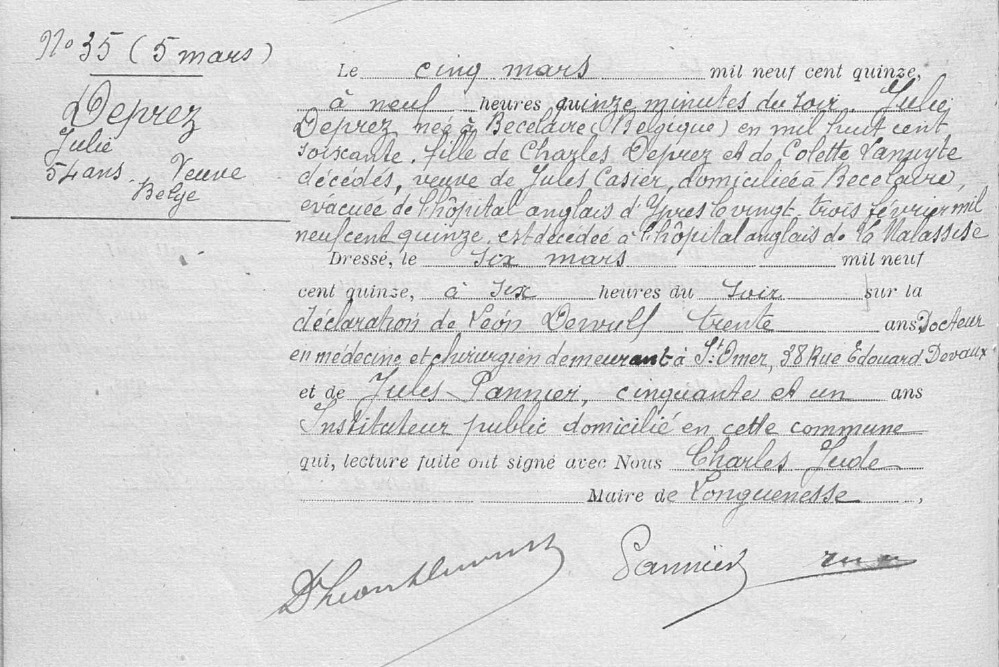 N° 35 (5 mars)
Deprez
Julie
54 ans. Veuve
Belge
Le cinq mars mil neuf cent quinze,
à neuf heures quinze minutes du soir. Julie
Deprez née à Becelaire (Belgique) en mil huit cent
soixante, fille de Charles Deprez et de Colette Vanuyte
décédés, veuve de Jules Casier, domiciliée à Becelaire,
evacuée de l'hôpital anglais d'Ypres le vingt-trois février mil
neuf cent quinze, est décédée à l'hôpital anglais de la Malassise
Dressé, le six mars mil neuf
cent quinze, à six heures du soir sur la
déclaration de Léon Dewulf trente ans Docteur
en médecine et chirurgien demeurant à St Omer, 38 Rue Edouard Devaux
et de Jules Pannier, cinquante et un ans
Instituteur public domicilié en cette commune
qui, lecture faite ont signé avec Nous Charles Jude
Maire de Longuenesse,
Pannier